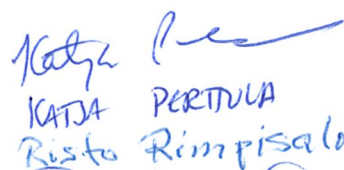 Katja
KATJA PERTTULA
Risto Rimpisalo